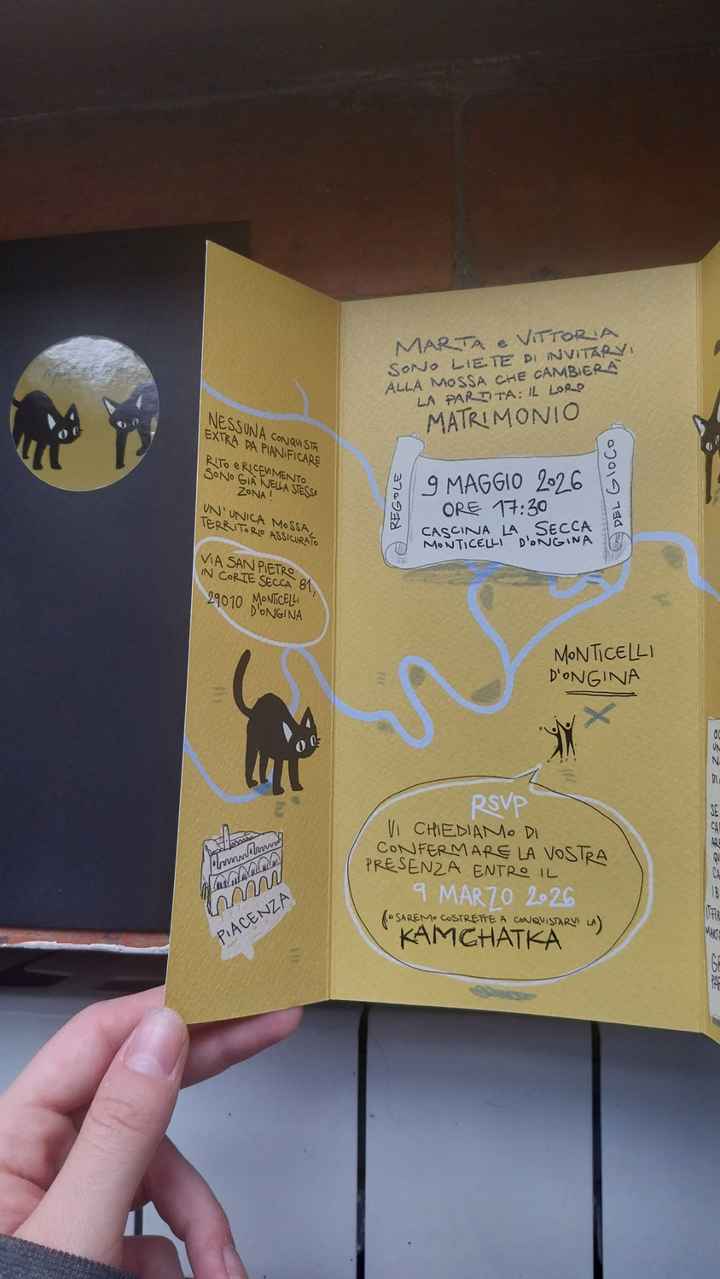 NESSUNA CONQUISTA
EXTRA DA PIANIFICARE
RITO e RICEVIMENTO
SONO GIÀ NELLA STESSA
ZONA!
UN'UNICA MOSSA,
TERRITORIO ASSICURATO
VIA SAN PIETRO
IN CORTE SECCA 81,
29010 MONTICELLI
D'ONGINA
PIACENZA
MARTA e VITTORIA
SONO LIETE DI INVITARVI
ALLA MOSSA CHE CAMBIERÀ
LA PARTITA: IL LORO
MATRIMONIO
REGOLE
9 MAGGIO 2026
ORE 17:30
CASCINA LA SECCA
MONTICELLI D'ONGINA
DEL GIOCO
MONTICELLI
D'ONGINA
RSVP
VI CHIEDIAMO DI
CONFERMARE LA VOSTRA
PRESENZA ENTRO IL
9 MARZO 2026
(O SAREMO COSTRETTE A CONQUISTARVI LA)
KAMCHATKA